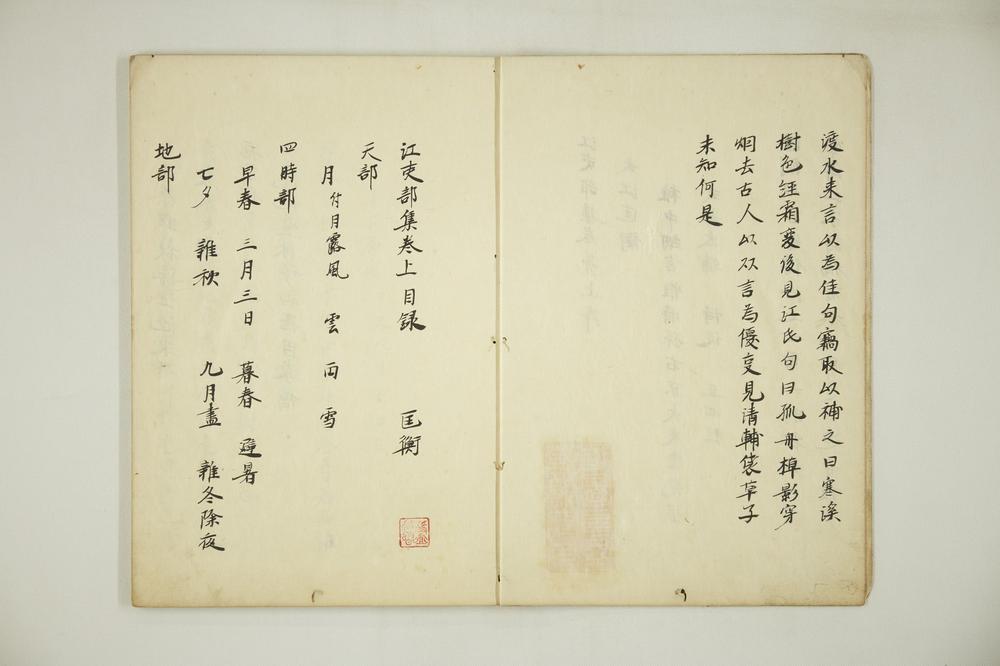 渡水来言以為佳句竊取以補之曰寒溪
樹色経霜変後見江氏句曰孤舟棹影穿
烟去古人以双言為優変見清輔袋草子
未知何是
江吏部集巻上目録 匡衡
天部
月付月露風 雲 雨 雪
四時部
早春 三月三日 暮春 避暑
七夕 雑秋 九月盡 雑冬除夜
地部